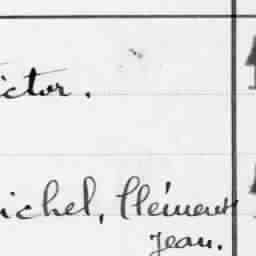 ictor.
ichel, Clément
Jean.